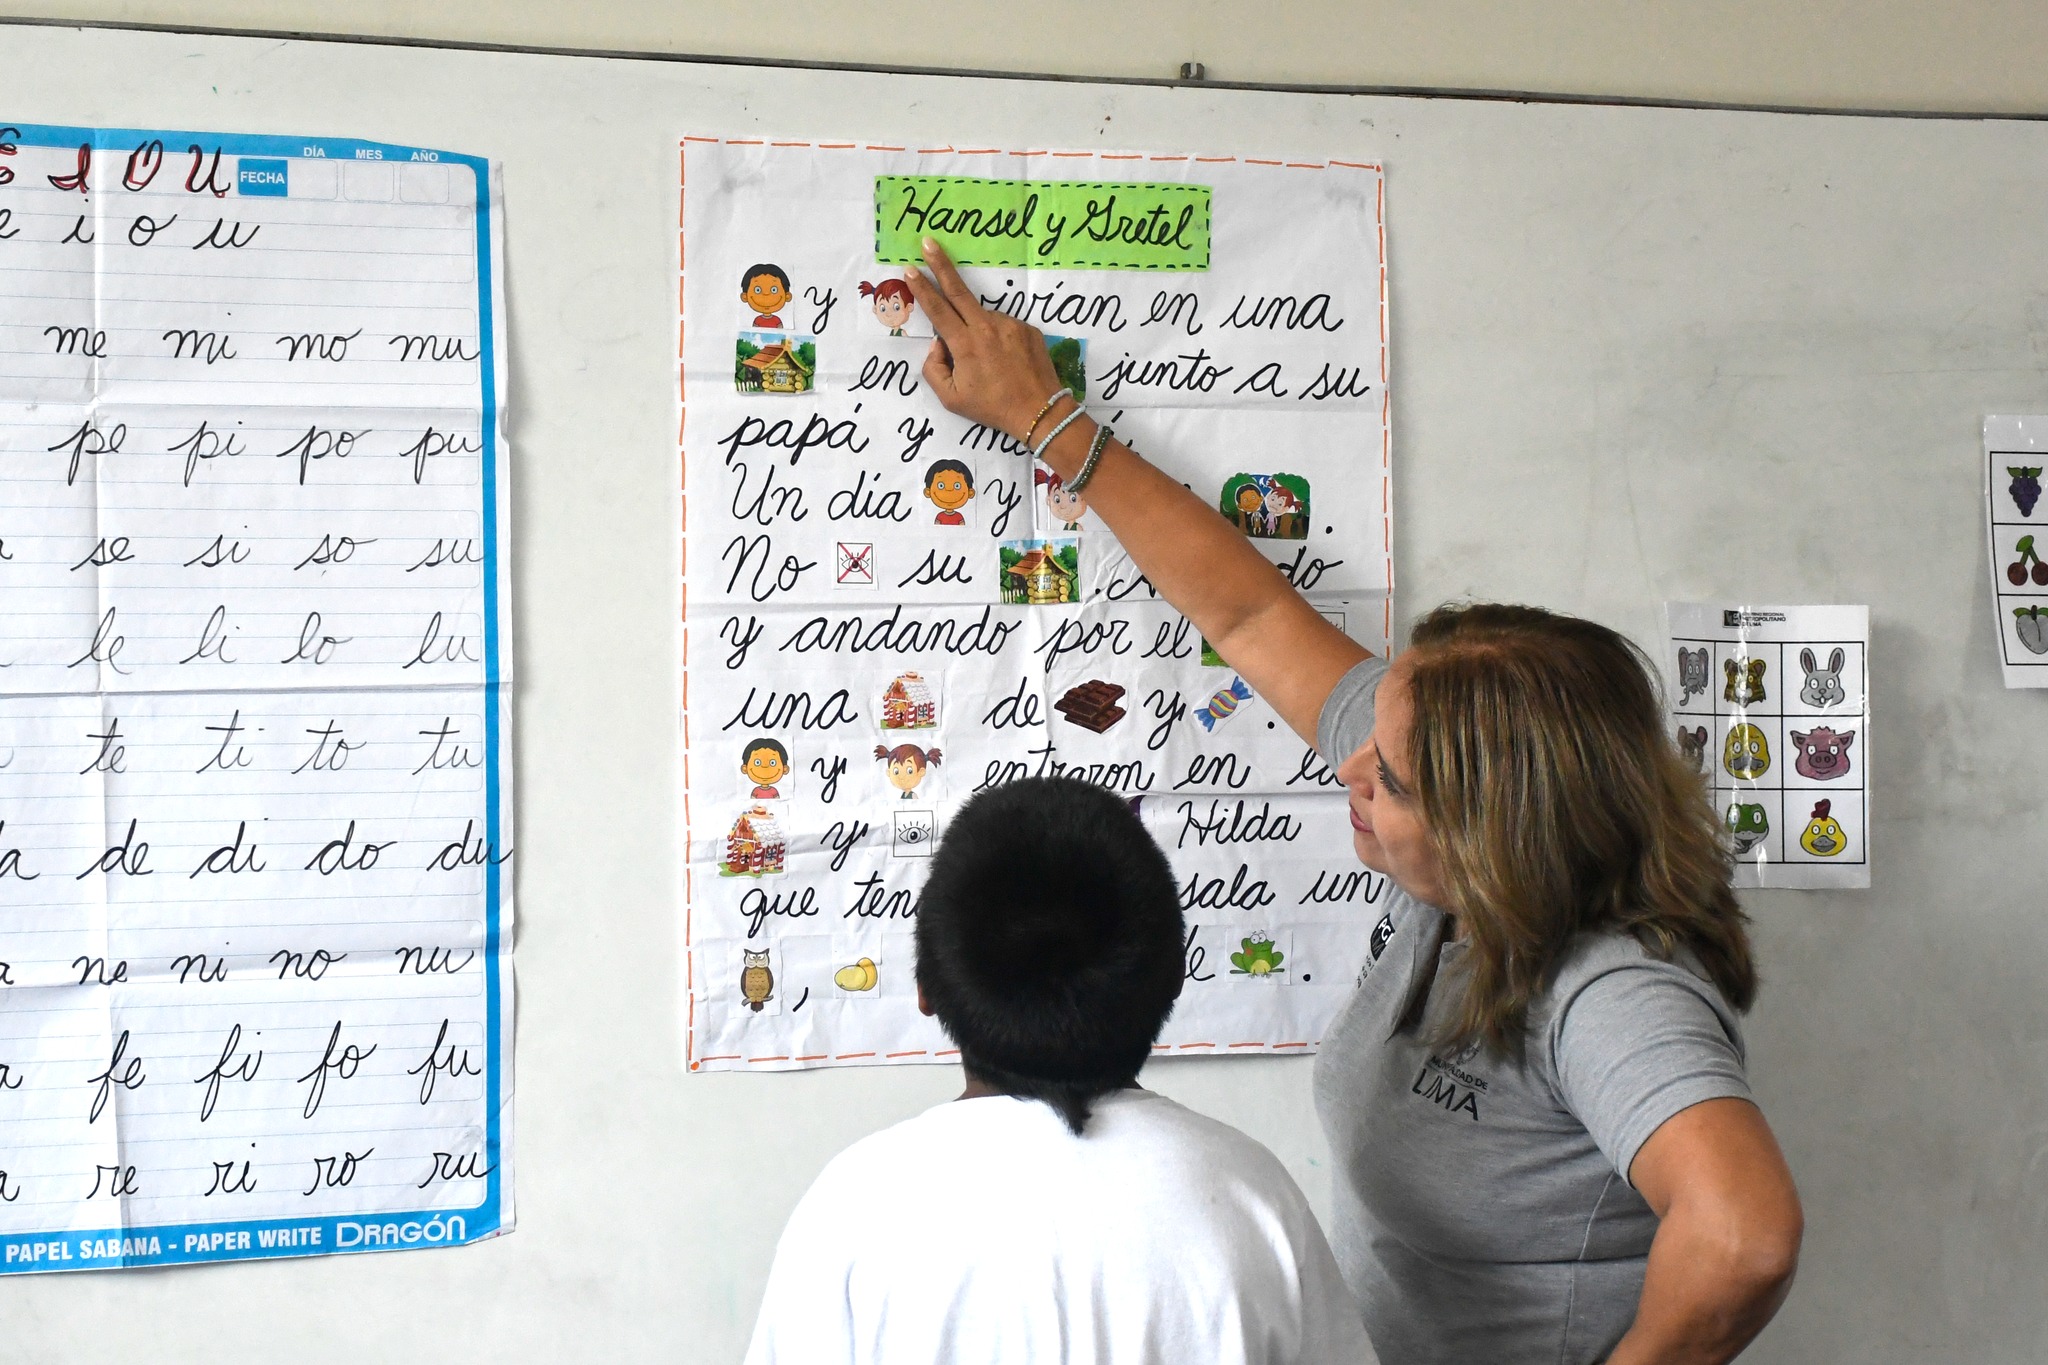 I O U
FECHA DÍA MES AÑO
e i o u
me mi mo mu
pe pi po pu
se si so su
le li lo lu
te ti to tu
da de di do du
ne ni no nu
fe fi fo fu
re ri ro ru
PAPEL SABANA - PAPER WRITE DRAGÓN
Hansel y Gretel
y vivían en una
en junto a su
papá y
Un día y .
No su .
y andando por el
una de y .
y entraron en la
y Hilda
que sala un
, .
METROPOLITANO
DE LIMA
LIMA